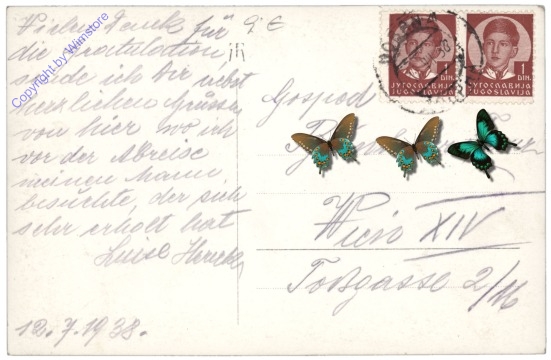 Vielen Dank für
die Gratulation
sende ich Dir nebst
herzlichen Grüssen
von hier wo ich
vor der Abreise
meinen Mann
besuchte, der sich
sehr erholt hat
Luise
12.7.1938.
9 €
Gospod
Wien XIV
Toßgasse 2/16
1 DIN.
ЈУГОСЛАВИЈА
JUGOSLAVIJA
1 DIN.
ЈУГОСЛАВИЈА
JUGOSLAVIJA
Copyright by Winstore